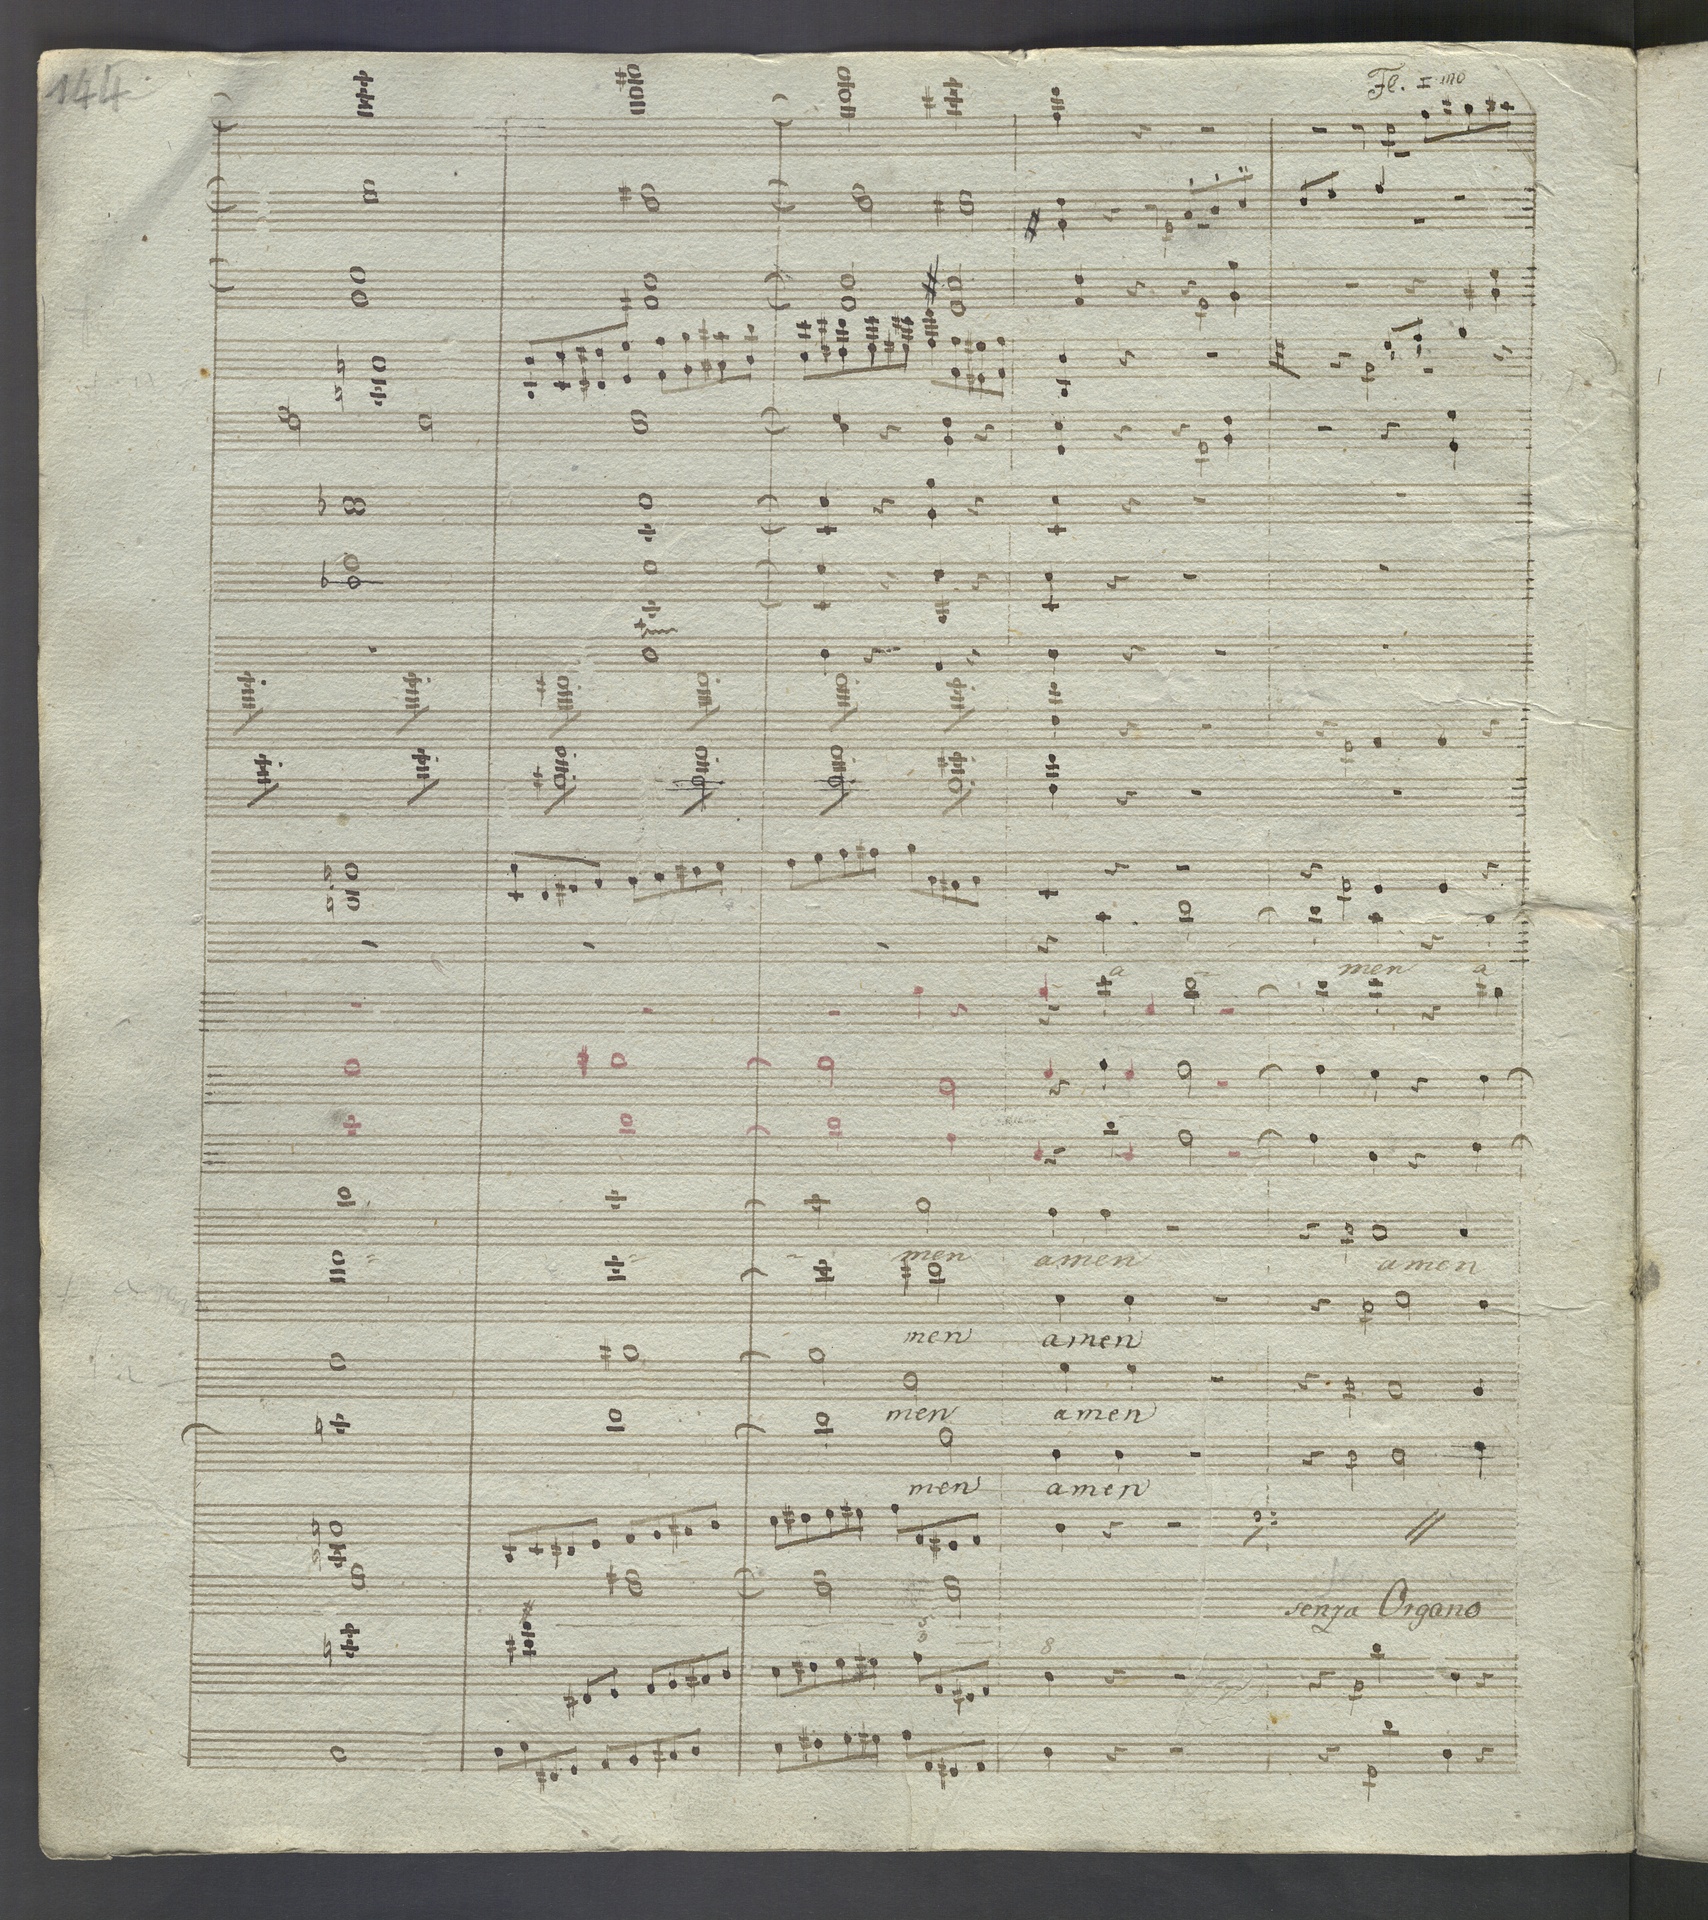 144
Fl. Imo
a - men a
men amen amen
men amen
men amen
men amen
senza Organo
5
3 8